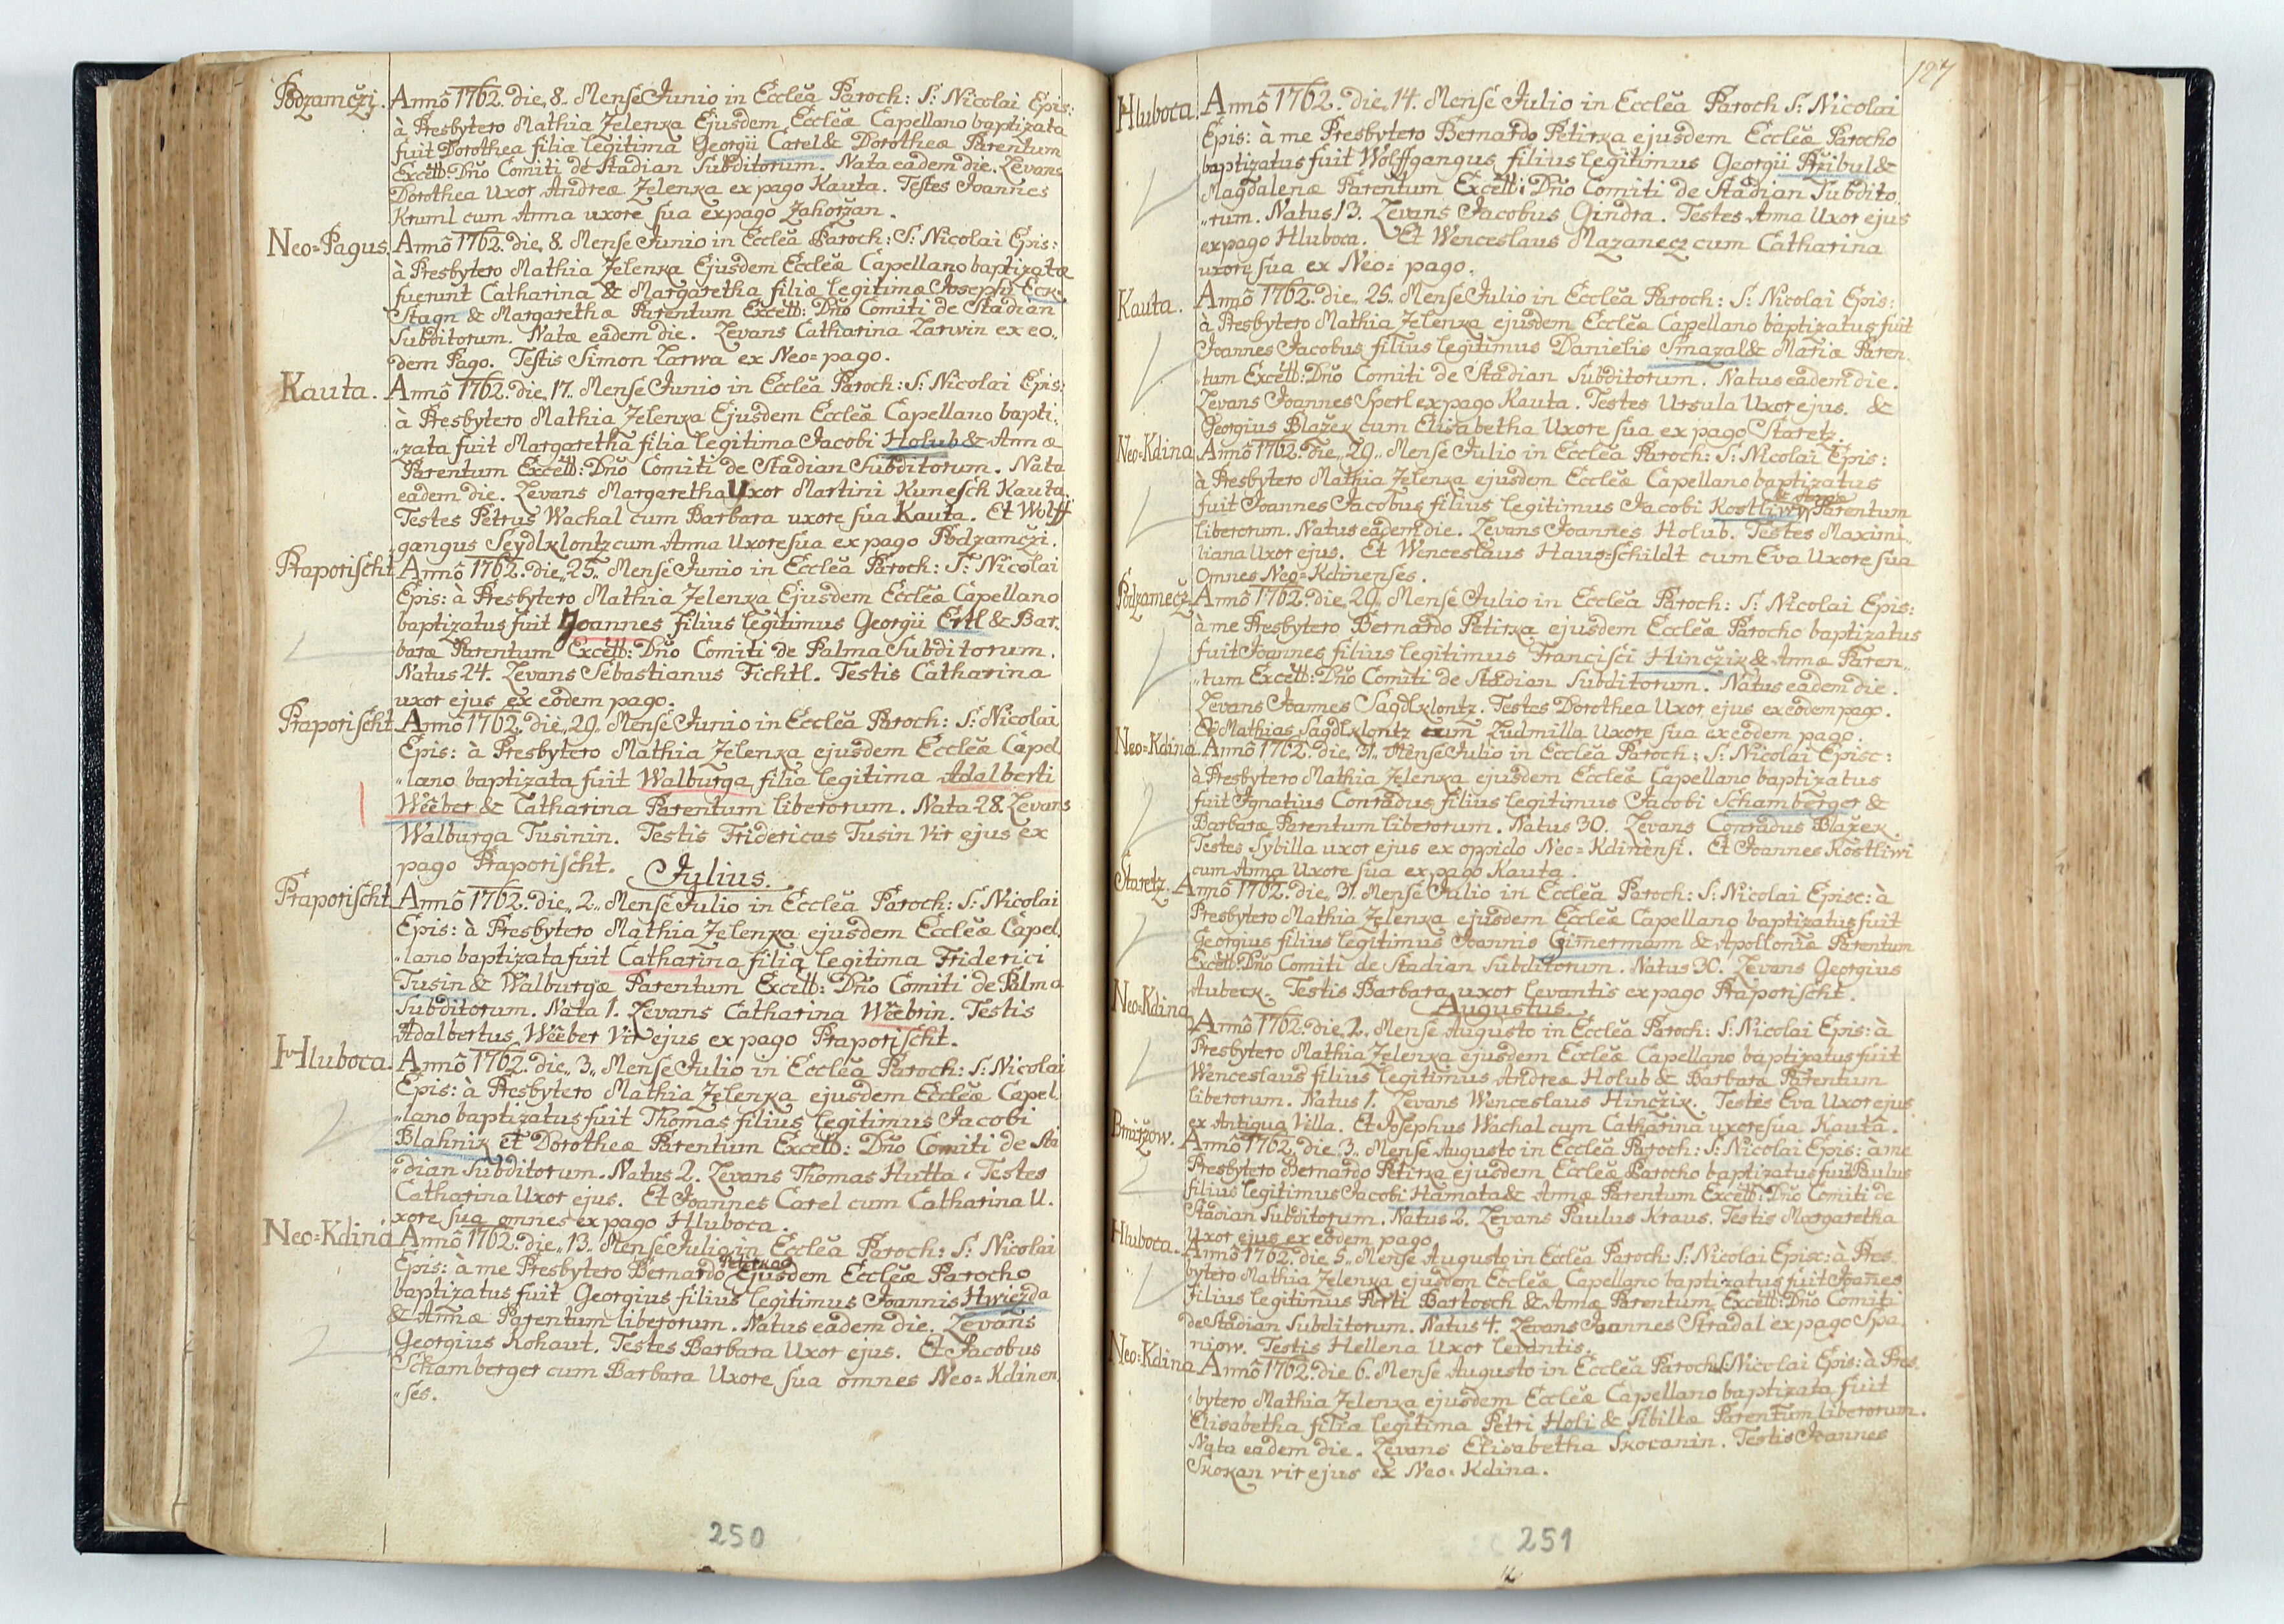 Podzamczi. Annô 1762. die 8. Mense Junio in Ecclâ Paroch: S: Nicolai Epis:
à Presbytero Mathia Zelenka Ejusdem Eccleæ Capellano baptizata
fuit Dorothea filia legitima Georgii Carel & Dorotheæ Parentum
Excell: Dño Comiti de Stadian Subditorum. Nata eadem die. Levans
Dorothea Uxor Andreæ Zelenka ex pago Kauta. Testes Joannes
Kruml cum Anna uxore sua ex pago Zahorzan.
Neo=Pagus. Annô 1762. die 8. Mense Junio in Ecclâ Paroch: S: Nicolai Epis:
à Presbytero Mathia Zelenka Ejusdem Eccleæ Capellano baptizatæ
fuerunt Catharina & Margaretha filiæ legitimæ Josephi Eck=
Stagn & Margarethæ Parentum Excell: Dño Comiti de Stadian
Subditorum. Natæ eadem die. Levans Catharina Larwin ex eo,,
dem Pago. Testis Simon Larwa ex Neo=pago.
Kauta. Annô 1762. die 17. Mense Junio in Ecclâ Paroch: S: Nicolai Epis:
à Presbytero Mathia Zelenka Ejusdem Eccleæ Capellano bapti,,
,,zata fuit Margaretha filia legitima Jacobi Holub & Annæ
Parentum Excell: Dño Comiti de Stadian Subditorum. Nata
eadem die. Levans Margaretha Uxor Martini Kunesch Kauta.
Testes Petrus Wachal cum Barbara uxore sua Kauta. Et Wolff
gangus Seydlklontz cum Anna Uxore sua ex pago Podzamczi.
Praporischt. Annô 1762. die 25. Mense Junio in Ecclâ Paroch: S: Nicolai
Epis: à Presbytero Mathia Zelenka Ejusdem Eccleæ Capellano
baptizatus fuit Joannes filius legitimus Georgii Ertl & Bar,,
baræ Parentum Excell: Dño Comiti de Palma Subditorum.
Natus 24. Levans Sebastianus Fichtl. Testis Catharina
uxor ejus ex eodem pago.
Praporischt. Annô 1762. die 29. Mense Junio in Ecclâ Paroch: S: Nicolai
Epis: à Presbytero Mathia Zelenka ejusdem Eccleæ Capel,,
,,lano baptizata fuit Walburga filia legitima Adalberti
Wëeber & Catharina Parentum liberorum. Nata 28. Levans
Walburga Tusinin. Testis Fridericus Tusin Vir ejus ex
pago Praporischt. Julius.
Praporischt. Annô 1762. die 2. Mense Julio in Ecclâ Paroch: S: Nicolai
Epis: à Presbytero Mathia Zelenka ejusdem Eccleæ Capel,,
,,lano baptizata fuit Catharina filia legitima Friderici
Tusin & Walburgæ Parentum Excell: Dño Comiti de Palma
Subditorum. Nata 1. Levans Catharina Wëebrin. Testis
Adalbertus Wëeber Vir ejus ex pago Praporischt.
Hluboca. Annô 1762. die 3. Mense Julio in Ecclâ Paroch: S: Nicolai
Epis: à Presbytero Mathia Zelenka ejusdem Eccleæ Capel,,
,,lano baptizatus fuit Thomas filius legitimus Jacobi
Blahnik et Dorotheæ Parentum Excell: Dño Comiti de Sta
,,dian Subditorum. Natus 2. Levans Thomas Hutta. Testes
Catharina Uxor ejus. Et Joannes Carel cum Catharina U.
xore sua omnes ex pago Hluboca.
Neo=Kdina. Annô 1762. die 13. Mense Julio in Ecclâ Paroch: S: Nicolai
Epis: à me Presbytero Bernardo Petirka Ejusdem Eccleæ Parocho
baptizatus fuit Georgius filius legitimus Joannis Hwiezda
& Annæ Parentum liberorum. Natus eadem die. Levans
Georgius Kohaut. Testes Barbara Uxor ejus. Et Jacobus
Schamberger cum Barbara Uxore sua omnes Neo=Kdinen,,
,,ses.
250
127
Hluboca. Annô 1762. die 14. Mense Julio in Ecclâ Paroch S: Nicolai
Epis: à me Presbytero Bernardo Petirka ejusdem Eccleæ Parocho
baptizatus fuit Wolffgangus filius legitimus Georgii Przibul &
Magdalenæ Parentum Excell: Dño Comiti de Stadian Subdito,,
,,rum. Natus 13. Levans Jacobus Gindra. Testes Anna Uxor ejus
ex pago Hluboca. Et Wenceslaus Mazanecz cum Catharina
uxore sua ex Neo=pago.
Kauta. Annô 1762. die 25. Mense Julio in Ecclâ Paroch: S: Nicolai Epis:
à Presbytero Mathia Zelenka ejusdem Eccleæ Capellano baptizatus fuit
Joannes Jacobus filius legitimus Danielis Smazal & Mariæ Paren,,
,,tum Excell: Dño Comiti de Stadian Subditorum. Natus eadem die.
Levans Joannes Sperl ex pago Kauta. Testes Ursula Uxor ejus. &
Georgius Blažek cum Elisabetha Uxore sua ex pago Staretz.
Neo=Kdina. Annô 1762. die 29. Mense Julio in Ecclâ Paroch: S: Nicolai Epis:
à Presbytero Mathia Zelenka ejusdem Eccleæ Capellano baptizatus
fuit Joannes Jacobus filius legitimus Jacobi Kostliwy & Annæ Parentum
liberorum. Natus eadem die. Levans Joannes Holub. Testes Maximi,,
liana Uxor ejus. Et Wenceslaus Haus=schildt cum Eva Uxore sua
omnes Neo=Kdinenses.
Podzamecz. Annô 1762. die 29. Mense Julio in Ecclâ Paroch: S: Nicolai Epis:
à me Presbytero Bernardo Petirka ejusdem Eccleæ Parocho baptizatus
fuit Joannes filius legitimus Francisci Hinczik & Annæ Paren,,
,,tum Excell: Dño Comiti de Stadian Subditorum. Natus eadem die.
Levans Joannes Sagdlklontz. Testes Dorothea Uxor ejus ex eodem pago.
Et Mathias Sagdlklontz cum Ludmilla Uxore sua ex eodem pago.
Neo=Kdina. Annô 1762. die 31. Mense Julio in Ecclâ Paroch: S: Nicolai Episc:
à Presbytero Mathia Zelenka ejusdem Eccleæ Capellano baptizatus
fuit Ignatius Conradus filius legitimus Jacobi Schamberger &
Barbaræ Parentum liberorum. Natus 30. Levans Conradus Blažek.
Testes Sybilla uxor ejus ex oppido Neo=Kdinensi. Et Joannes Kostliwi
cum Anna Uxore sua ex pago Kauta.
Staretz. Annô 1762. die 31. Mense Julio in Ecclâ Paroch: S: Nicolai Episc: à
Presbytero Mathia Zelenka ejusdem Eccleæ Capellano baptizatus fuit
Georgius filius legitimus Joannis Gimermann & Apolloniæ Parentum
Excell: Dño Comiti de Stadian Subditorum. Natus 30. Levans Georgius
Aubeck. Testis Barbara uxor levantis ex pago Praporischt.
Augustus.
Neo=Kdina. Annô 1762. die 2. Mense Augusto in Ecclâ Paroch: S: Nicolai Epis: à
Presbytero Mathia Zelenka ejusdem Eccleæ Capellano baptizatus fuit
Wenceslaus filius legitimus Andreæ Holub & Barbaræ Parentum
liberorum. Natus 1. Levans Wenceslaus Hinczik. Testes Eva Uxor ejus
ex Antiqua Villa. Et Josephus Wachal cum Catharina uxore sua Kauta.
Bmirzow. Annô 1762. die 3. Mense Augusto in Ecclâ Paroch: S: Nicolai Epis: à me
Presbytero Bernardo Petirka ejusdem Eccleæ Parocho baptizatus fuit Paulus
filius legitimus Jacobi Hamata & Annæ Parentum Excell: Dño Comiti de
Stadian Subditorum. Natus 2. Levans Paulus Kraus. Testis Margaretha
Uxor ejus ex eodem pago.
Hluboca. Annô 1762. die 5. Mense Augusto in Ecclâ Paroch: S: Nicolai Epix: à Pres,,
bytero Mathia Zelenka ejusdem Eccleæ Capellano baptizatus fuit Joañes
filius legitimus Bartosch & Annæ Parentum Excell: Dño Comiti
de Stadian Subditorum. Natus 4. Levans Joannes Stradal ex pago Spa,,
niow. Testis Hellena Uxor levantis.
Neo=Kdina. Annô 1762. die 6. Mense Augusto in Ecclâ Paroch: S: Nicolai Epis: à Pres,,
,,bytero Mathia Zelenka ejusdem Eccleæ Capellano baptizata fuit
Elisabetha filia legitima Petri Holi & Sibillæ Parentum liberorum.
Nata eadem die. Levans Elisabetha Skocanin. Testis Joannes
Skokan vir ejus ex Neo=Kdina.
251